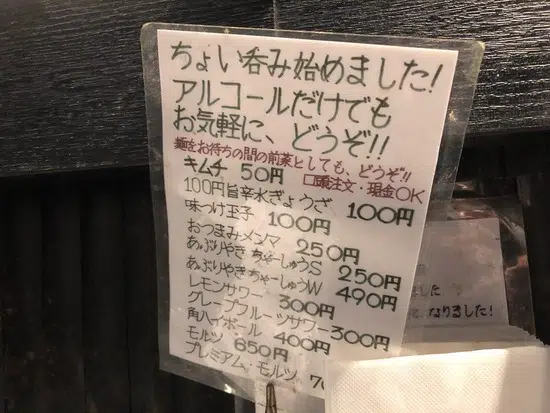 ちょい呑み始めました!
アルコールだけでも
お気軽に、どうぞ!!
麺をお待ちの間の前菜としても、どうぞ!!
キムチ 50円 口頭注文・現金OK
100円旨辛水ぎょうざ 100円
味つけ玉子 100円
おつまみメンマ 250円
あぶりやきちゃーしゅうS 250円
あぶりやきちゃーしゅうW 490円
レモンサワー 300円
グレープフルーツサワー 300円
角ハイボール 400円
モルツ 650円
プレミアム・モルツ 70
ました
なりました!